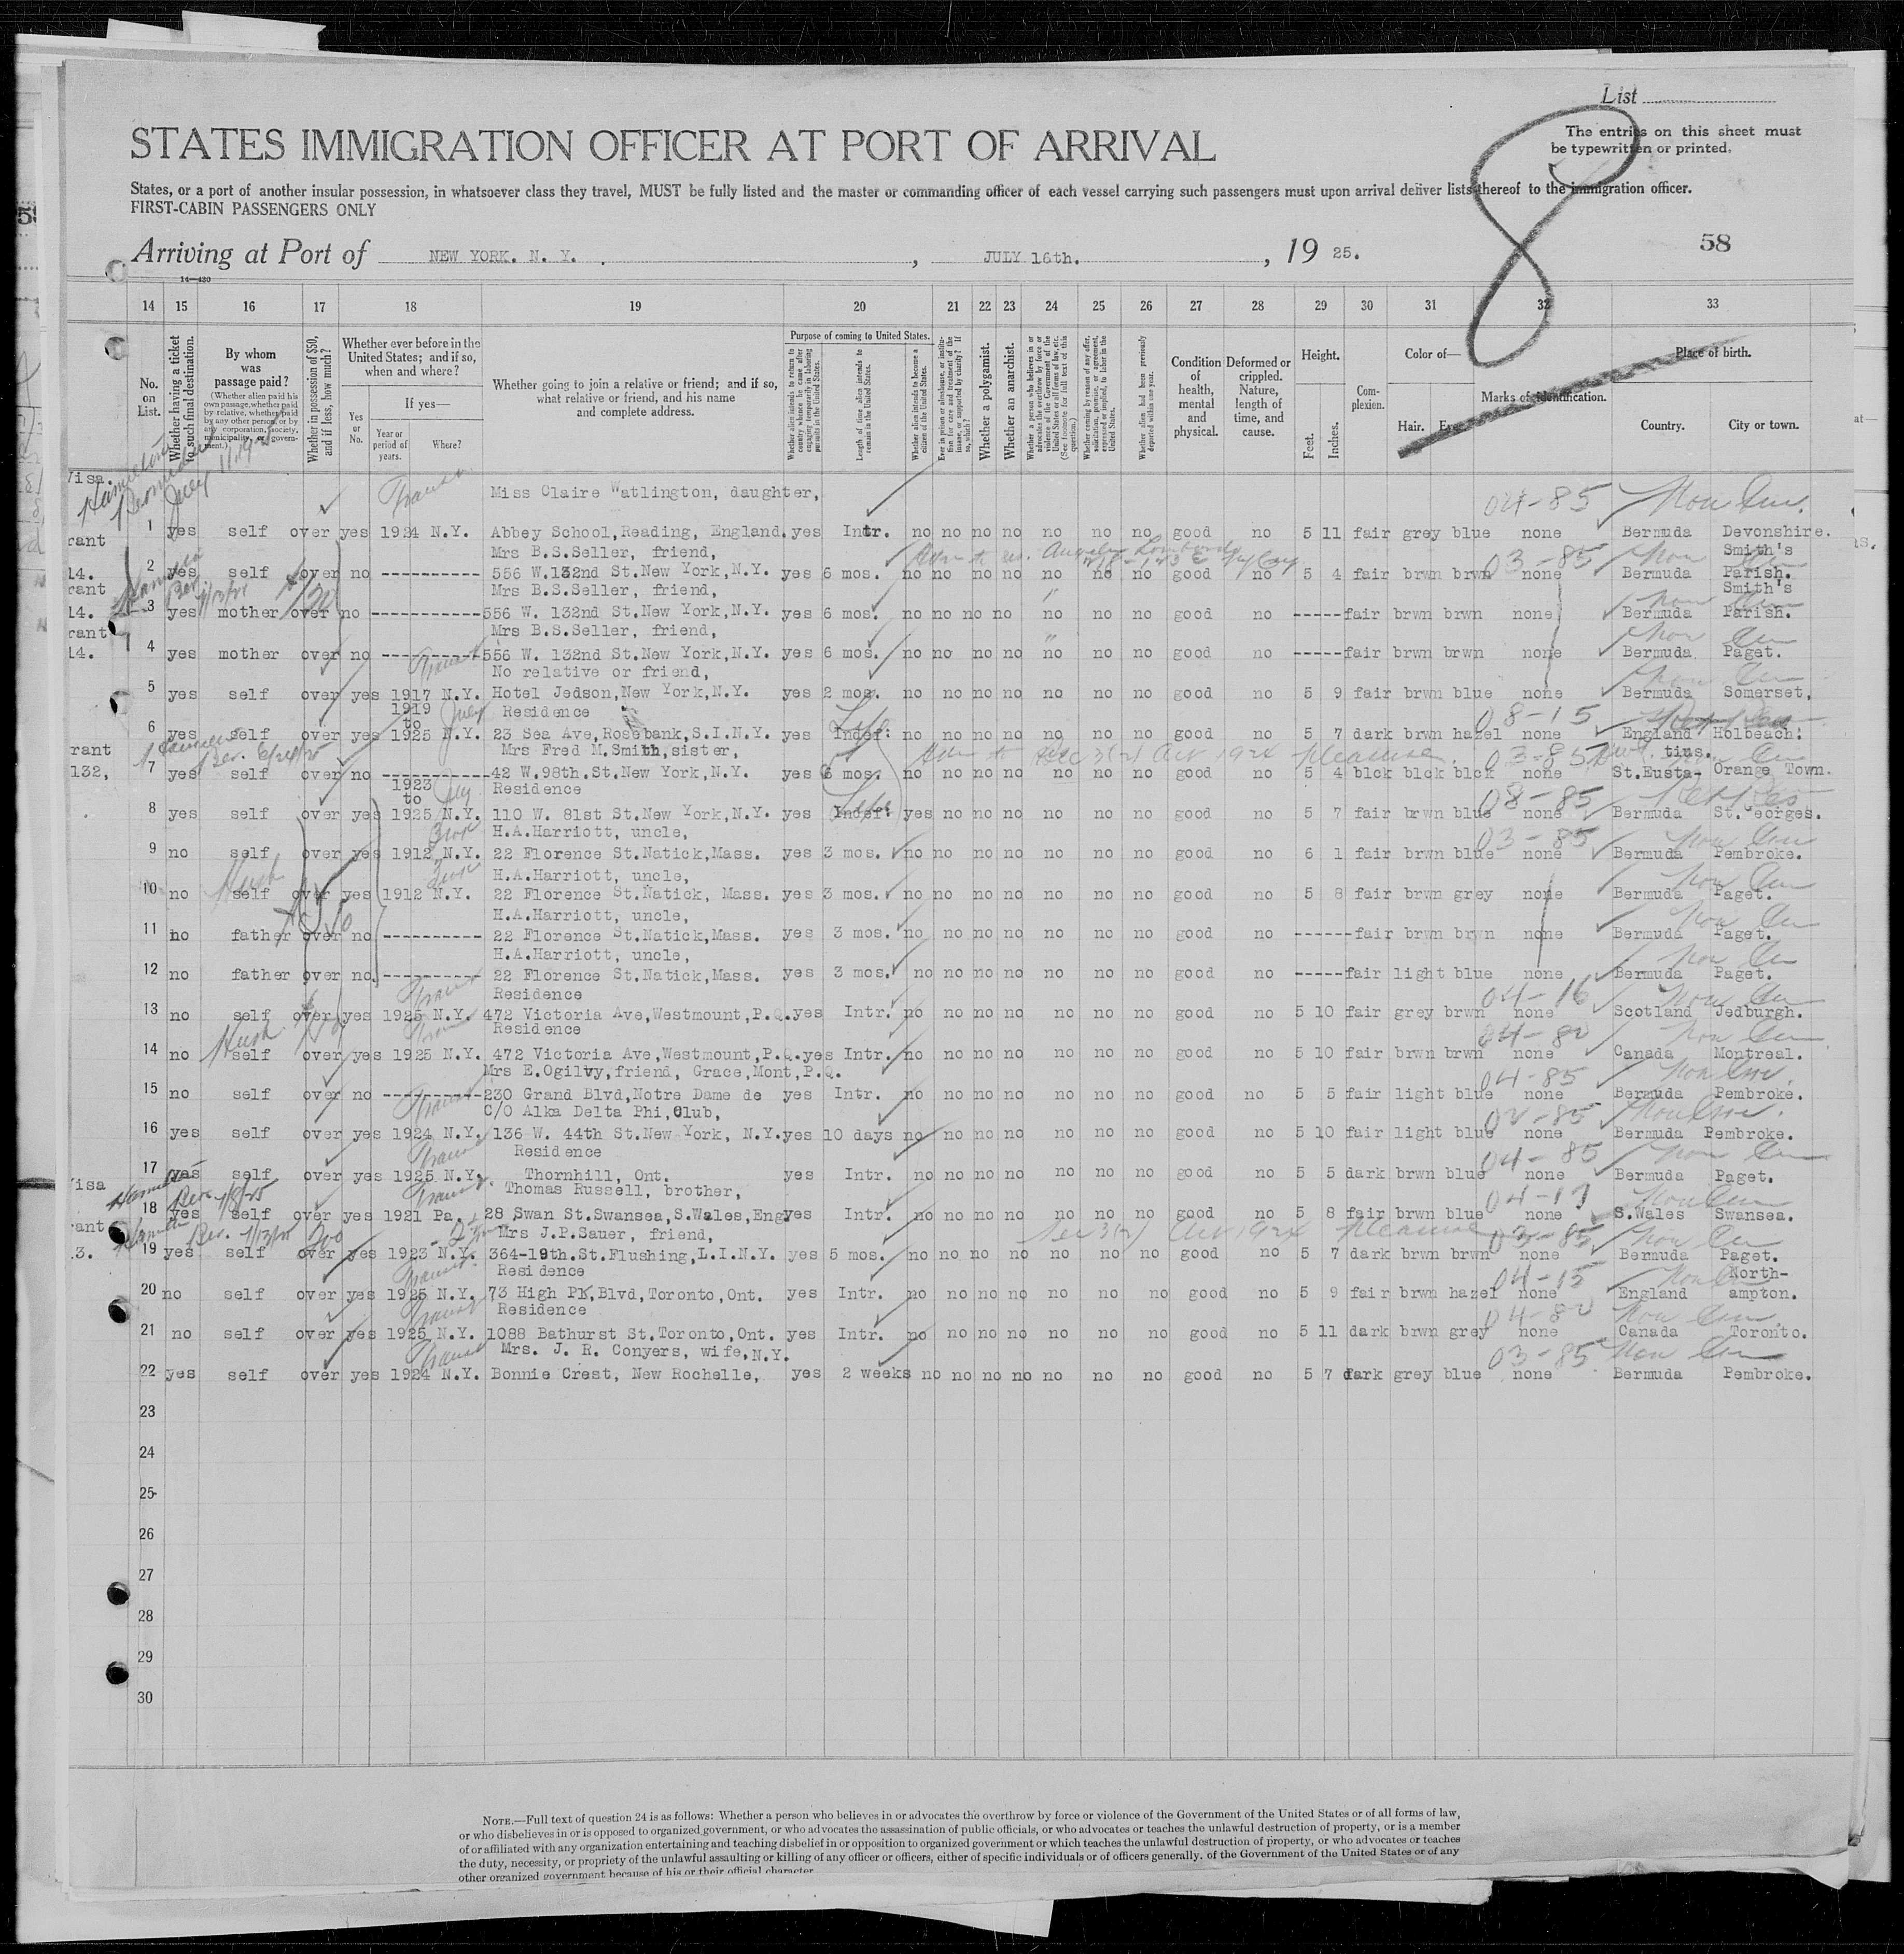 List
STATES IMMIGRATION OFFICER AT PORT OF ARRIVAL
The entries on this sheet must
be typewritten or printed.
States, or a port of another insular possession, in whatsoever class they travel, MUST be fully listed and the master or commanding officer of each vessel carrying such passengers must upon arrival deliver lists thereof to the immigration officer.
FIRST-CABIN PASSENGERS ONLY
8
Arriving at Port of NEW YORK. N. Y. , JULY 16th. , 19 25.
58
14—430
14 15 16 17 18 19 20 21 22 23 24 25 26 27 28 29 30 31 32 33
No. on List.
Whether having a ticket to such final destination.
By whom was passage paid?
(Whether alien paid his own passage, whether paid by relative, whether paid by any other person, or by any corporation, society, municipality, or government.)
Whether in possession of $50, and if less, how much?
Whether ever before in the United States; and if so, when and where?
Yes or No.
If yes—
Year or period of years.
Where?
Whether going to join a relative or friend; and if so, what relative or friend, and his name and complete address.
Purpose of coming to United States.
Whether alien intends to return to country whence he came after engaging temporarily in laboring pursuits in the United States.
Length of time alien intends to remain in the United States.
Whether alien intends to become a citizen of the United States.
Ever in prison or almshouse, or institution for care and treatment of the insane, or supported by charity? If so, which?
Whether a polygamist.
Whether an anarchist.
Whether a person who believes in or advocates the overthrow by force or violence of the Government of the United States or all forms of law, etc. (See footnote for full text of this question.)
Whether coming by reason of any offer, solicitation, promise, or agreement, expressed or implied, to labor in the United States.
Whether alien had been previously deported within one year.
Condition of health, mental and physical.
Deformed or crippled. Nature, length of time, and cause.
Height.
Feet. Inches.
Complexion.
Color of—
Hair. Eyes.
Marks of identification.
Place of birth.
Country. City or town.
Visa.
Miss Claire Watlington, daughter,
04-85
1 yes self over yes 1924 N.Y. Abbey School,Reading, England. yes Intr. no no no no no no no good no 5 11 fair grey blue none Bermuda Devonshire.
rant
Mrs B.S.Seller, friend, Smith's
03-85
2 yes self over no ---------- 556 W.132nd St.New York,N.Y. yes 6 mos. no no no no no no no good no 5 4 fair brwn brwn none Bermuda Parish.
14.
rant
Mrs B.S.Seller, friend, Smith's
3 yes mother over no ---------- 556 W. 132nd St.New York,N.Y. yes 6 mos. no no no no no no no good no -----fair brwn brwn none Bermuda Parish.
14.
rant
Mrs B.S.Seller, friend,
4 yes mother over no ---------- 556 W. 132nd St.New York,N.Y. yes 6 mos. no no no no no no no good no -----fair brwn brwn none Bermuda Paget.
14.
No relative or friend,
5 yes self over yes 1917 N.Y. Hotel Jedson,New York,N.Y. yes 2 mos. no no no no no no no good no 5 9 fair brwn blue none Bermuda Somerset.
1919
to Residence
08-15
6 yes self over yes 1925 N.Y. 23 Sea Ave,Rosebank,S.I.N.Y. yes Indef: no no no no no no no good no 5 7 dark brwn hazel none England Holbeach:
rant
Mrs Fred M.Smith,sister, tius.
03-85
7 yes self over no ---------- 42 W.98th.St.New York,N.Y. yes 6 mos. no no no no no no no good no 5 4 blck blck blck none St.Eusta- Orange Town.
132,
1923
to Residence
08-85
8 yes self over yes 1925 N.Y. 110 W. 81st St.New York,N.Y. yes Indef: yes no no no no no no good no 5 7 fair brwn blue none Bermuda St.Georges.
H.A.Harriott, uncle,
03-85
9 no self over yes 1912 N.Y. 22 Florence St.Natick,Mass. yes 3 mos. no no no no no no no good no 6 1 fair brwn blue none Bermuda Pembroke.
H.A.Harriott, uncle,
10 no self over yes 1912 N.Y. 22 Florence St.Natick, Mass. yes 3 mos. no no no no no no no good no 5 8 fair brwn grey none Bermuda Paget.
H.A.Harriott, uncle,
11 no father over no ---------- 22 Florence St.Natick,Mass. yes 3 mos. no no no no no no no good no ------fair brwn brwn none Bermuda Paget.
H.A.Harriott, uncle,
12 no father over no. ---------- 22 Florence St.Natick,Mass. yes 3 mos. no no no no no no no good no -----fair light blue none Bermuda Paget.
Residence
04-16
13 no self over yes 1925 N.Y. 472 Victoria Ave,Westmount,P.Q.yes Intr. no no no no no no no good no 5 10 fair grey brwn none Scotland Jedburgh.
Residence
04-80
14 no self over yes 1925 N.Y. 472 Victoria Ave,Westmount,P.Q.yes Intr. no no no no no no no good no 5 10 fair brwn brwn none Canada Montreal.
Mrs E.Ogilvy,friend, Grace,Mont,P.Q.
04-85
15 no self over no ---------- 230 Grand Blvd,Notre Dame de yes Intr. no no no no no no no good no 5 5 fair light blue none Bermuda Pembroke.
C/O Alka Delta Phi,Club,
16 yes self over yes 1924 N.Y. 136 W. 44th St.New York, N.Y.yes 10 days no no no no no no no good no 5 10 fair light blue none Bermuda Pembroke.
Residence
04-85
17 yes self over yes 1925 N.Y. Thornhill, Ont. yes Intr. no no no no no no no good no 5 5 dark brwn blue none Bermuda Paget.
isa
Thomas Russell, brother,
18 yes self over yes 1921 Pa. 28 Swan St.Swansea,S.Wales,Eng yes Intr. no no no no no no no good no 5 8 fair brwn blue none S.Wales Swansea.
rant
Mrs J.P.Sauer, friend,
03-85
19 yes self over yes 1923 N.Y. 364-19th.St.Flushing,L.I.N.Y. yes 5 mos. no no no no no no no good no 5 7 dark brwn brwn none Bermuda Paget.
3.
Residence North-
04-15
20 no self over yes 1925 N.Y. 73 High PK,Blvd,Toronto,Ont. yes Intr. no no no no no no no good no 5 9 fair brwn hazel none England ampton.
Residence
04-80
21 no self over yes 1925 N.Y. 1088 Bathurst St.Toronto,Ont. yes Intr. no no no no no no no good no 5 11 dark brwn grey none Canada Toronto.
Mrs. J. R. Conyers, wife,N.Y.
03-85
22 yes self over yes 1924 N.Y. Bonnie Crest, New Rochelle, yes 2 weeks no no no no no no no good no 5 7 dark grey blue none Bermuda Pembroke.
23
24
25
26
27
28
29
30
NOTE.—Full text of question 24 is as follows: Whether a person who believes in or advocates the overthrow by force or violence of the Government of the United States or of all forms of law,
or who disbelieves in or is opposed to organized government, or who advocates the assassination of public officials, or who advocates or teaches the unlawful destruction of property, or is a member
of or affiliated with any organization entertaining and teaching disbelief in or opposition to organized government or which teaches the unlawful destruction of property, or who advocates or teaches
the duty, necessity, or propriety of the unlawful assaulting or killing of any officer or officers, either of specific individuals or of officers generally, of the Government of the United States or of any
other organized government because of his or their official character.